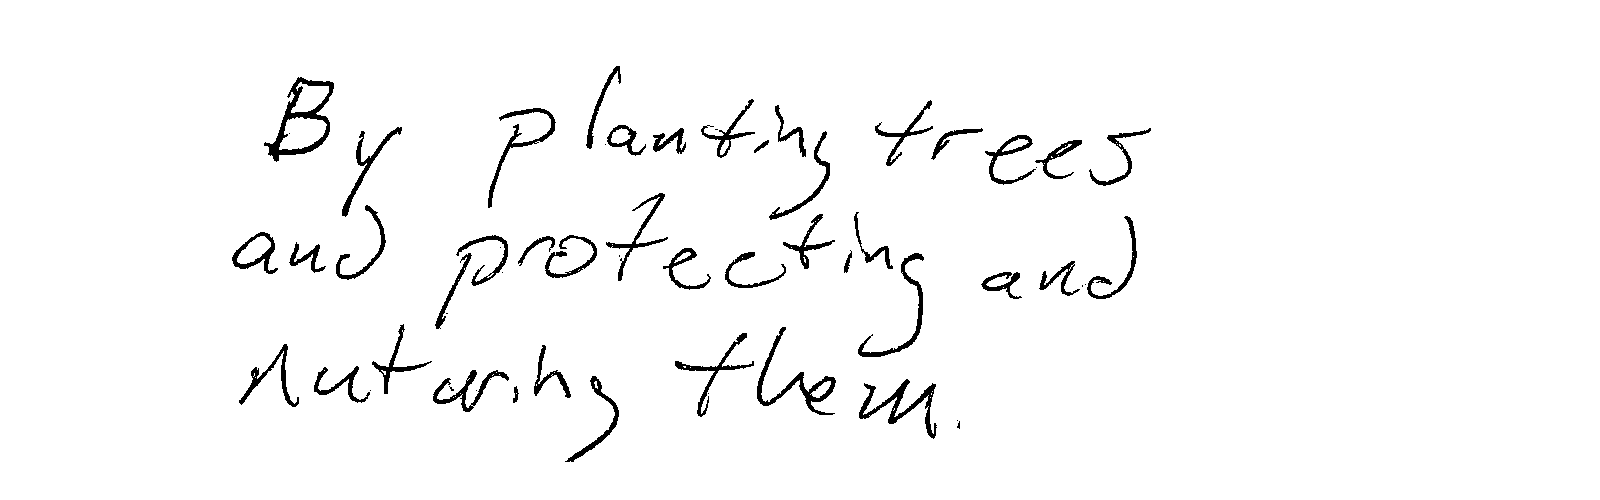 By planting trees
and protecting and
nuturing them.